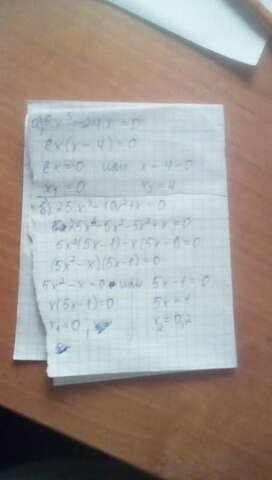 x(x-4)=0
x=0 или x-4=0
x₁=0 x₂=4
б) 25x³-10x²+x=0
25x³-5x²-5x²+x=0
5x²(5x-1)-x(5x-1)=0
(5x²-x)(5x-1)=0
5x²-x=0 или 5x-1=0
x(5x-1)=0 5x=1
x₁=0, x₂=0,2